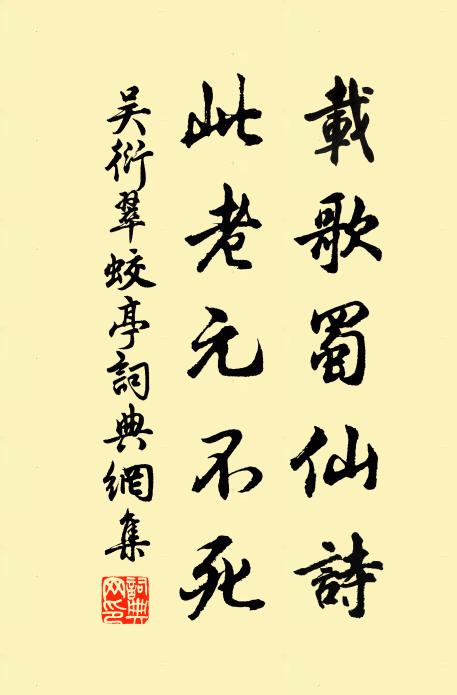 載歌蜀仙詩
此老元不死
吳衍翠蛟亭詞典網集
詞典網印